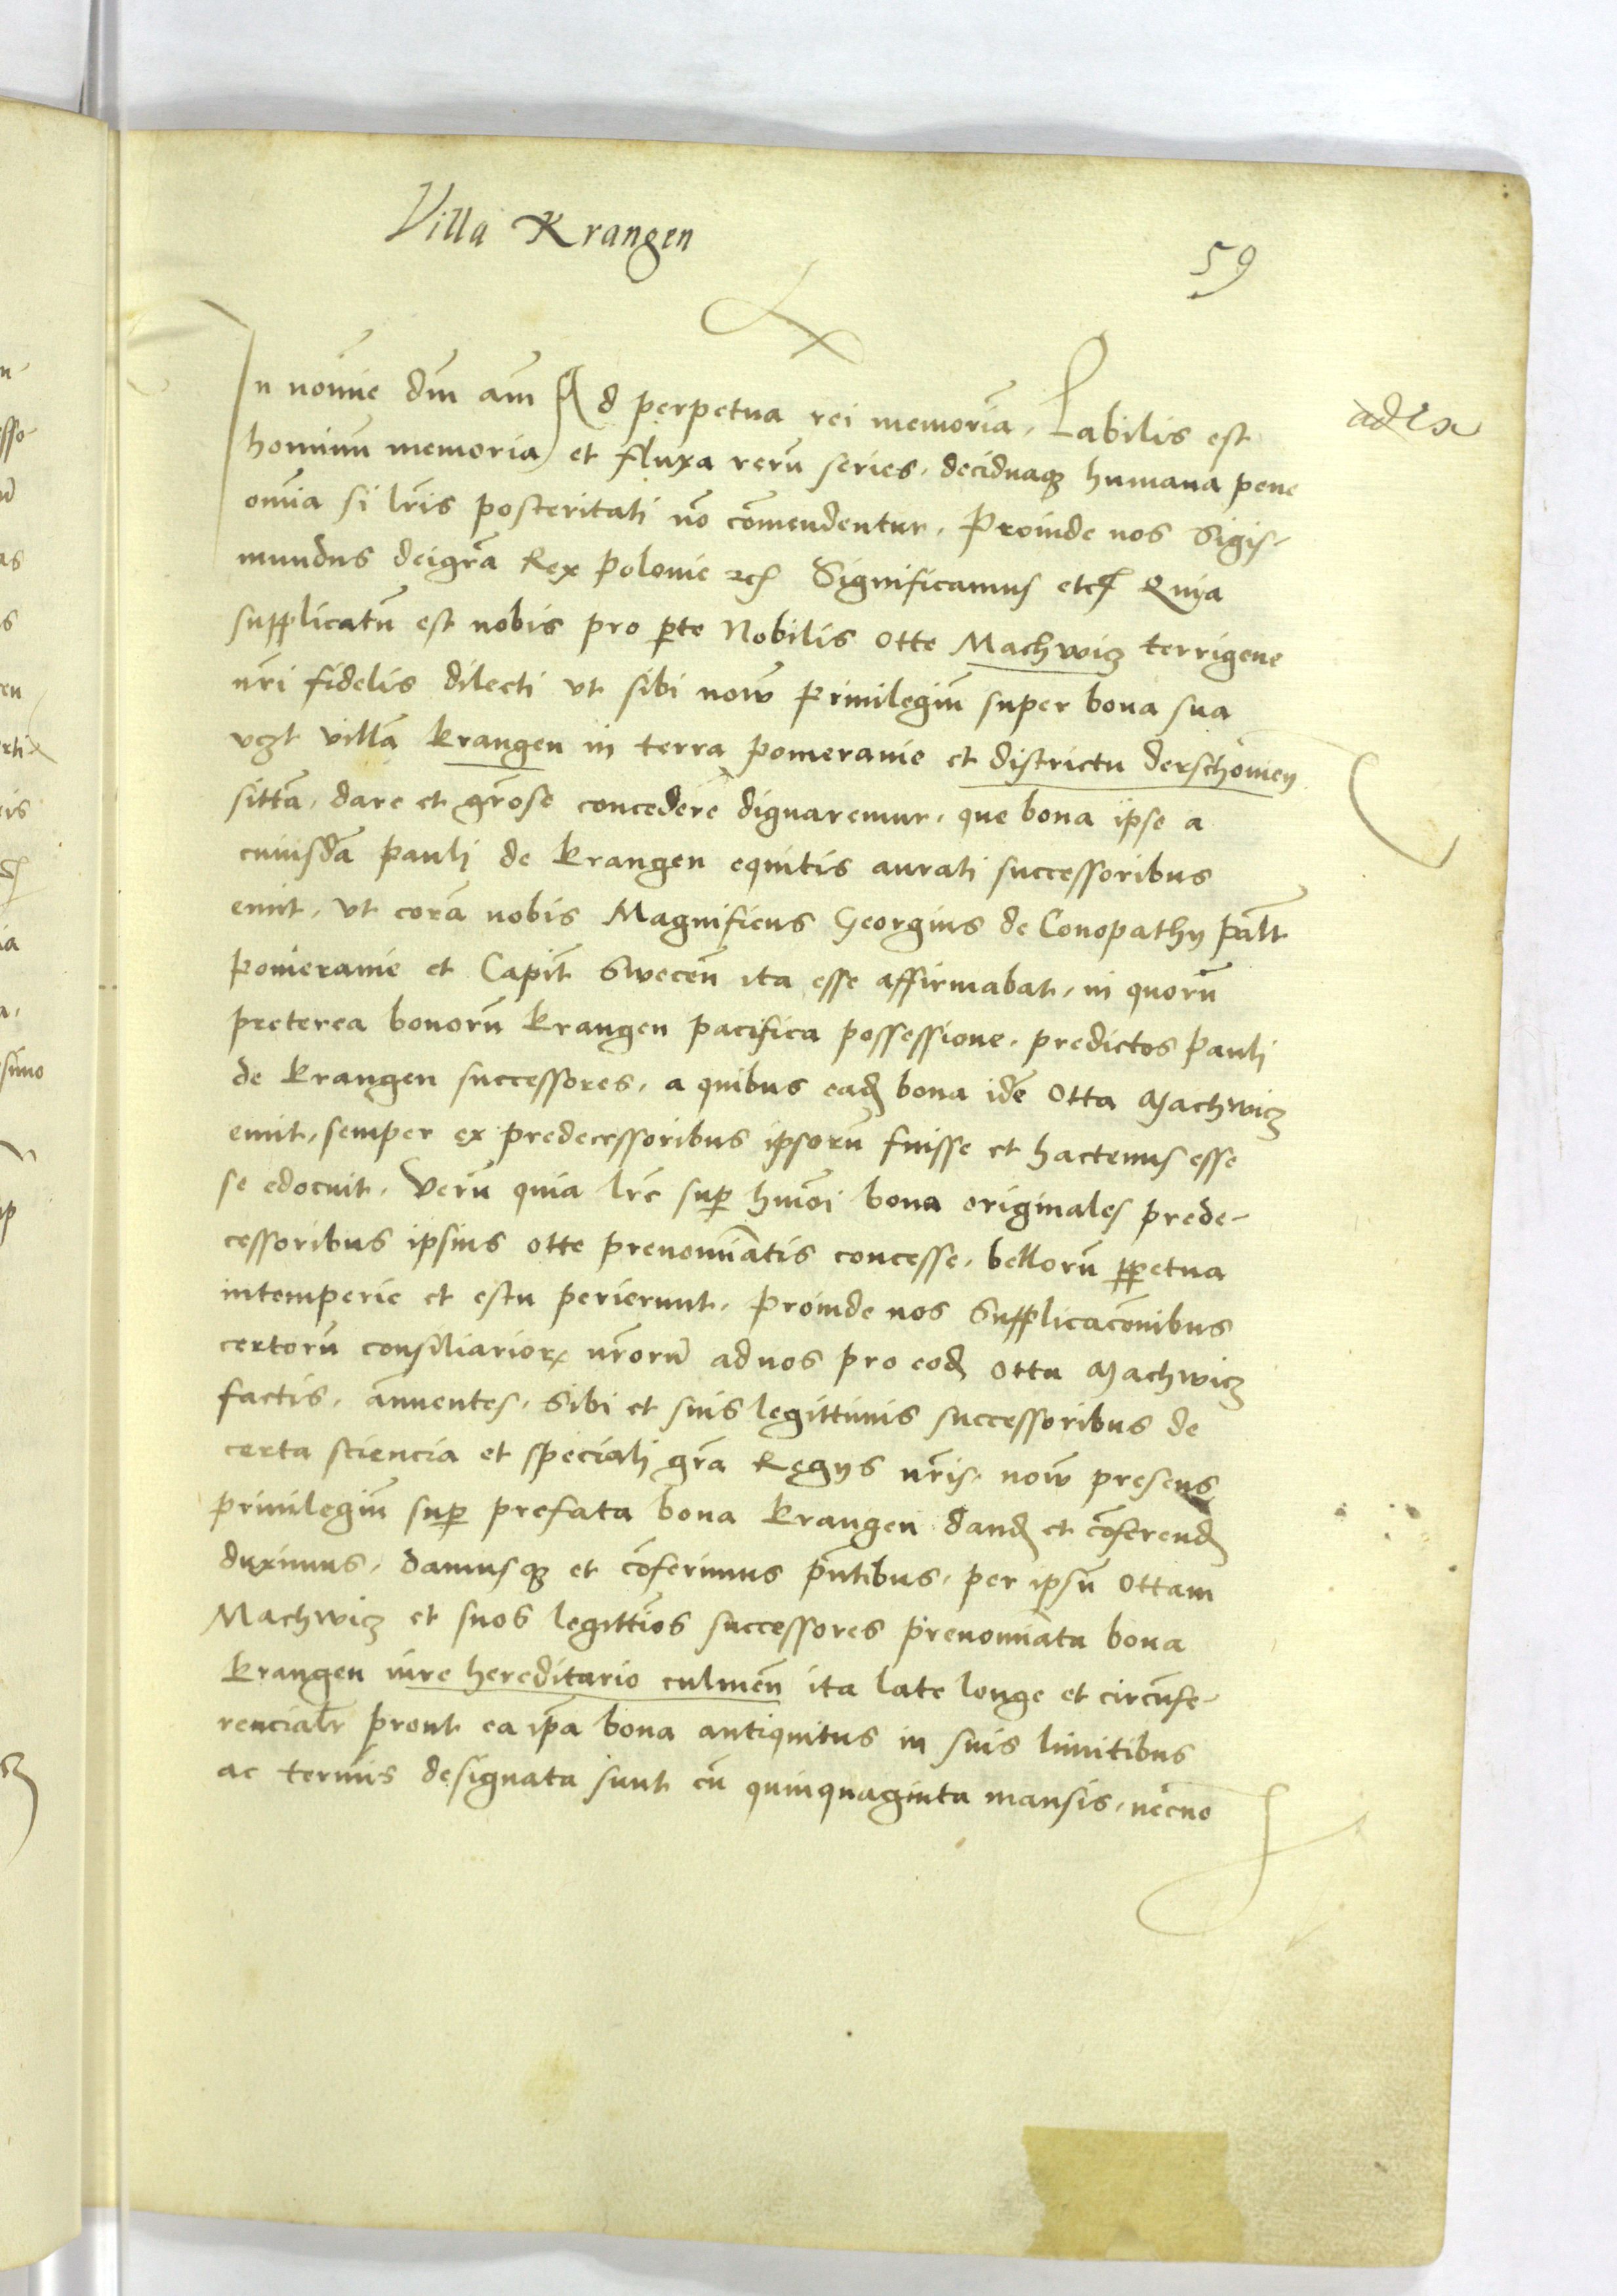 Villa Krangen
59
In noie dm am Ad perpetua rei memoriã. Labilis est
adex
hominũ memoria et fluxa rerũ series, deciduaqꝫ humana pene
omia si lris posteritati nõ comendentur. Proinde nos Sigis-
mundus deigrã Rex Polonie ꝛcꝭ Significamus etcꝭ Quia
supplicatũ est nobis pro pte Nobilis Otte Machwicz terrigene
nri fidelis dilecti vt sibi nouũ Priuilegiũ super bona sua
vczt villã Krangen in terra Pomeranie et districtu derschouien
sittã, dare et grose concedere dignaremur, que bona ipse a
cuiusdã Pauli de Krangen equitis aurati successoribus
emit, vt corã nobis Magnificus Georgius de Conopathy Palt
Pomeranie et Capit Swecen ita esse affirmabat, in quorũ
preterea bonorũ Krangen pacifica possessione, predictos Pauli
de Krangen successores, a quibus eadꝫ bona idẽ Otta Machwicz
emit, semper ex predecessoribus ipsorũ fuisse et hactenus esse
se edocuit. Verũ quia lrẽ suꝑ hmõi bona originales prede-
cessoribus ipsius Otte prenomiatis concesse, bellorũ ꝑpetua
intemperie et estu perierunt. Proinde nos Supplicaconibus
certorũ consiliarioꝝ nrorũ ad nos pro eodꝫ Otta Machwicz
factis, annuentes, Sibi et suis legittimis successoribus de
certa sciencia et speciali grã Regys nris, nouũ presens
priuilegiũ suꝑ prefata bona Krangen dandꝫ et cõferendꝫ
duximus, damusqꝫ et cõferimus pntibus, per ipsũ Ottam
Machwicz et suos legittios successores prenomiata bona
Krangen iure hereditario culmeñ ita late longe et circũfe-
rencialr prout ea ipa bona antiquitus in suis limitibus
ac termis designata sunt cũ quinquaginta mansis, necno